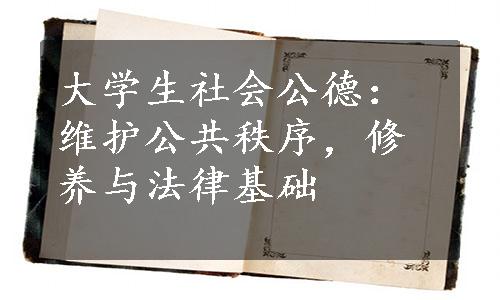 大学生社会公德：
维护公共秩序，修
养与法律基础